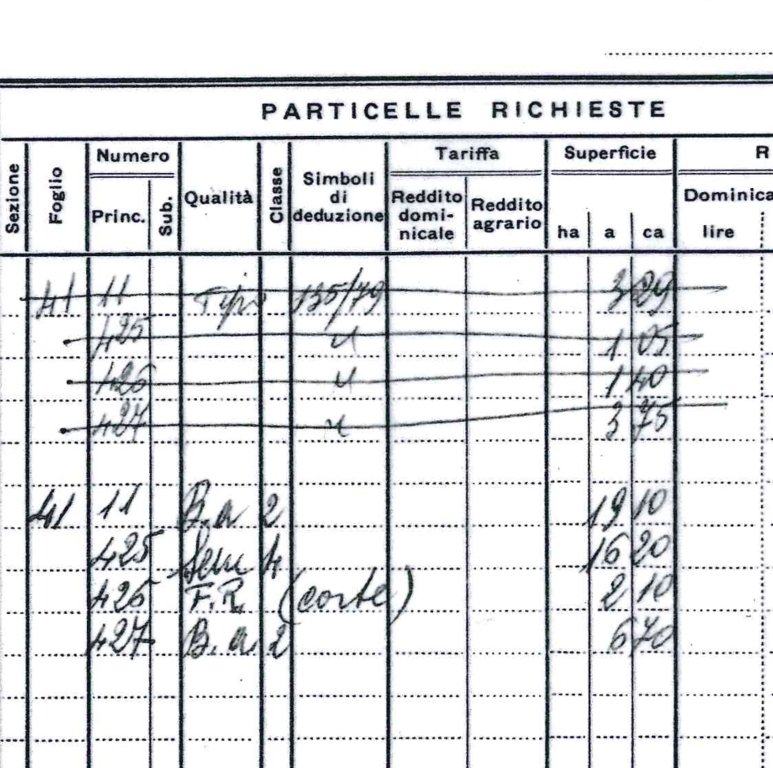 PARTICELLE RICHIESTE
Sezione Foglio Numero Princ. Sub. Qualità Classe Simboli di deduzione Tariffa Reddito domi-nicale Reddito agrario Superficie ha a ca R Dominica lire
41 11 Tipo 135/79 3 29
425 " 1 05
426 " 1 40
427 " 3 75
41 11 B.a 2 19 10
425 Sem 4 16 20
426 F.R. (corte) 2 10
427 B.a. 2 6 70